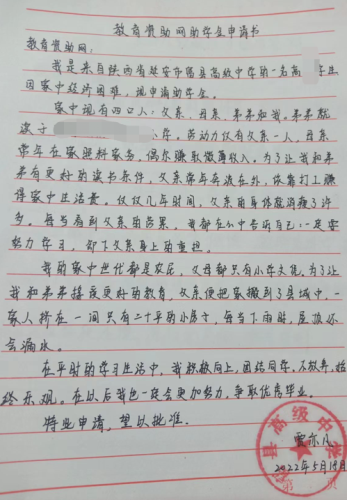 教育资助网助学金申请书
教育资助网:
我是来自陕西省延安市富县高级中学的一名高 学生
因家中经济困难，现申请助学金。
家中现有四口人：父亲、母亲、弟弟和我。弟弟就
读于 小学。劳动力仅有父亲一人，母亲
常年在家照料家务，偶尔赚取微薄收入。为了让我和弟
弟有更好的读书条件，父亲常年奔波在外，依靠打工赚
得家中生活费。仅仅几年时间，父亲的身体就消瘦了许
多。每当看到父亲的背景，我都在心中告诉自己：一定要
努力学习，卸下父亲身上的重担。
我的家中世代都是农民，父母都只有小学文化，为了让
我和弟弟接受更好的教育，父亲便把家搬到了县城中，一
家人挤在一间只有二十平的小房子，每当下雨时，屋顶还
会漏水。
在平时的学习生活中，我积极向上，团结同学，不放弃，始
终乐观。在以后我也一定会更加努力，争取优秀毕业。
特此申请，望以批准。
县高级中学
雷亦凡
2022年5月19日
第 页